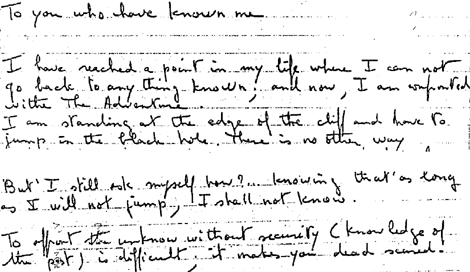 To you who have known me
I have reached a point in my life where I can not
go back to any thing known; and now, I am confronted
withe The Adventure.
I am standing at the edge of the cliff and have to
jump in the black hole. There is no other way.
But I still ask myself how?... knowing that as long
as I will not jump, I shall not know.
To affront the unknow without security (knowledge of
the past) is difficult; it makes you dead scared.